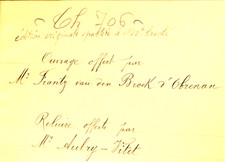 ~ Th 706 ~
édition originale
Ouvrage offert par
Mr Frantz van den Broek d'Obrenan
Reliure offerte par
Mr Aubry-Vitet